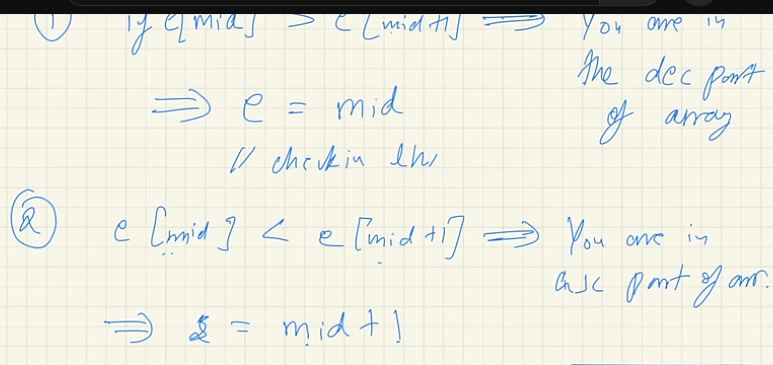 ① if e[mid] > e[mid+1] ⟹ You are in
the dec part
of array
⟹ e = mid
// check in lhs
② e[mid] < e[mid+1] ⟹ You are in
asc part of arr.
⟹ s = mid+1